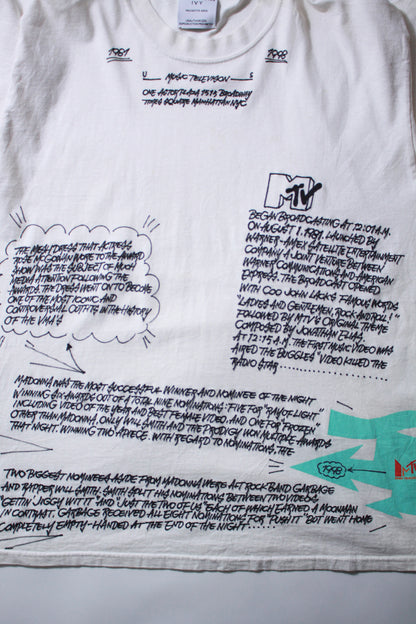 IVY
1981
1998
MUSIC TELEVISION
ONE ASTOR PLAZA 1515 BROADWAY
TIMES SQUARE MANHATTAN NYC
MTV
BEGAN BROADCASTING AT 12:01 A.M.
ON AUGUST 1, 1981, LAUNCHED BY
WARNER-AMEX SATELLITE ENTERTAINMENT
COMPANY A JOINT VENTURE BETWEEN
WARNER COMMUNICATIONS AND AMERICAN
EXPRESS. THE BROADCAST OPENED
WITH COO JOHN LACK'S FAMOUS WORDS
"LADIES AND GENTLEMEN, ROCK AND ROLL!"
FOLLOWED BY MTV'S ORIGINAL THEME
COMPOSED BY JONATHAN ELIAS.
AT 12:15 A.M. THE FIRST MUSIC VIDEO WAS
AIRED THE BUGGLES' VIDEO KILLED THE
RADIO STAR..................
THE MESH DRESS THAT ACTRESS
ROSE MCGOWAN WORE TO THE AWARD
SHOW WAS THE SUBJECT OF MUCH
MEDIA ATTENTION FOLLOWING THE
AWARDS. THE DRESS WENT ON TO BECOME
ONE OF THE MOST ICONIC AND
CONTROVERSIAL OUTFITS IN THE HISTORY
OF THE VMA'S
MADONNA WAS THE MOST SUCCESSFUL WINNER AND NOMINEE OF THE NIGHT
WINNING SIX AWARDS OUT OF A TOTAL NINE NOMINATIONS: FIVE FOR "RAY OF LIGHT"
INCLUDING VIDEO OF THE YEAR AND BEST FEMALE VIDEO, AND ONE FOR "FROZEN"
OTHER THAN MADONNA, ONLY WILL SMITH AND THE PRODIGY WON MULTIPLE AWARDS
THAT NIGHT, WINNING TWO APIECE. WITH REGARD TO NOMINATIONS, THE
1998
MTV
TWO BIGGEST NOMINEES ASIDE FROM MADONNA WERE ALT ROCK BAND GARBAGE
AND RAPPER WILL SMITH. SMITH SPLIT HIS NOMINATIONS BETWEEN TWO VIDEOS,
"GETTIN' JIGGY WIT IT" AND "JUST THE TWO OF US" EACH OF WHICH EARNED A MOONMAN
IN CONTRAST, GARBAGE RECEIVED ALL EIGHT NOMINATIONS FOR "PUSH IT" BUT WENT HOME
COMPLETELY EMPTY-HANDED AT THE END OF THE NIGHT......